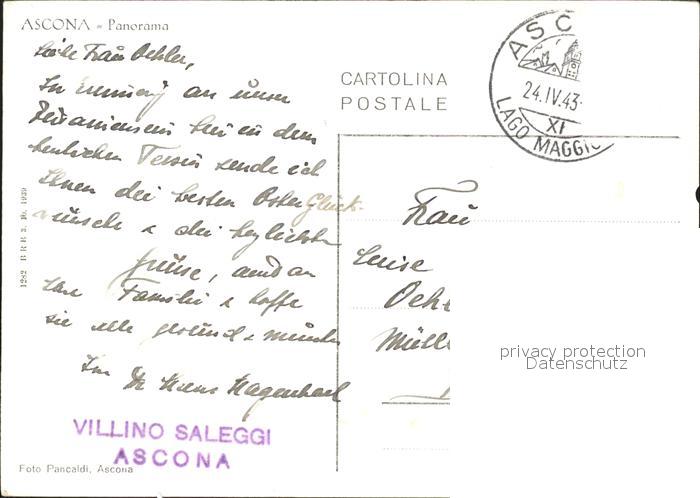 ASCONA - Panorama
Liebe Frau Oehler,
In Erinnerung an unser
Beisammensein hier in dem
herrlichen Tessin sende ich
Ihnen die besten Oster Glück-
wünsche & die herzlichsten
Grüsse, auch an
Ihre Familie & hoffe
sie alle gesund & munter
Ihr Dr Hans Hagenbach
VILLINO SALEGGI
ASCONA
Foto Pancaldi, Ascona
1282 B R B 3. 10. 1939
CARTOLINA
POSTALE
ASC
24.IV.43-
XI
LAGO MAGGIO
Frau
Luise
Oeh
Müll
privacy protection
Datenschutz